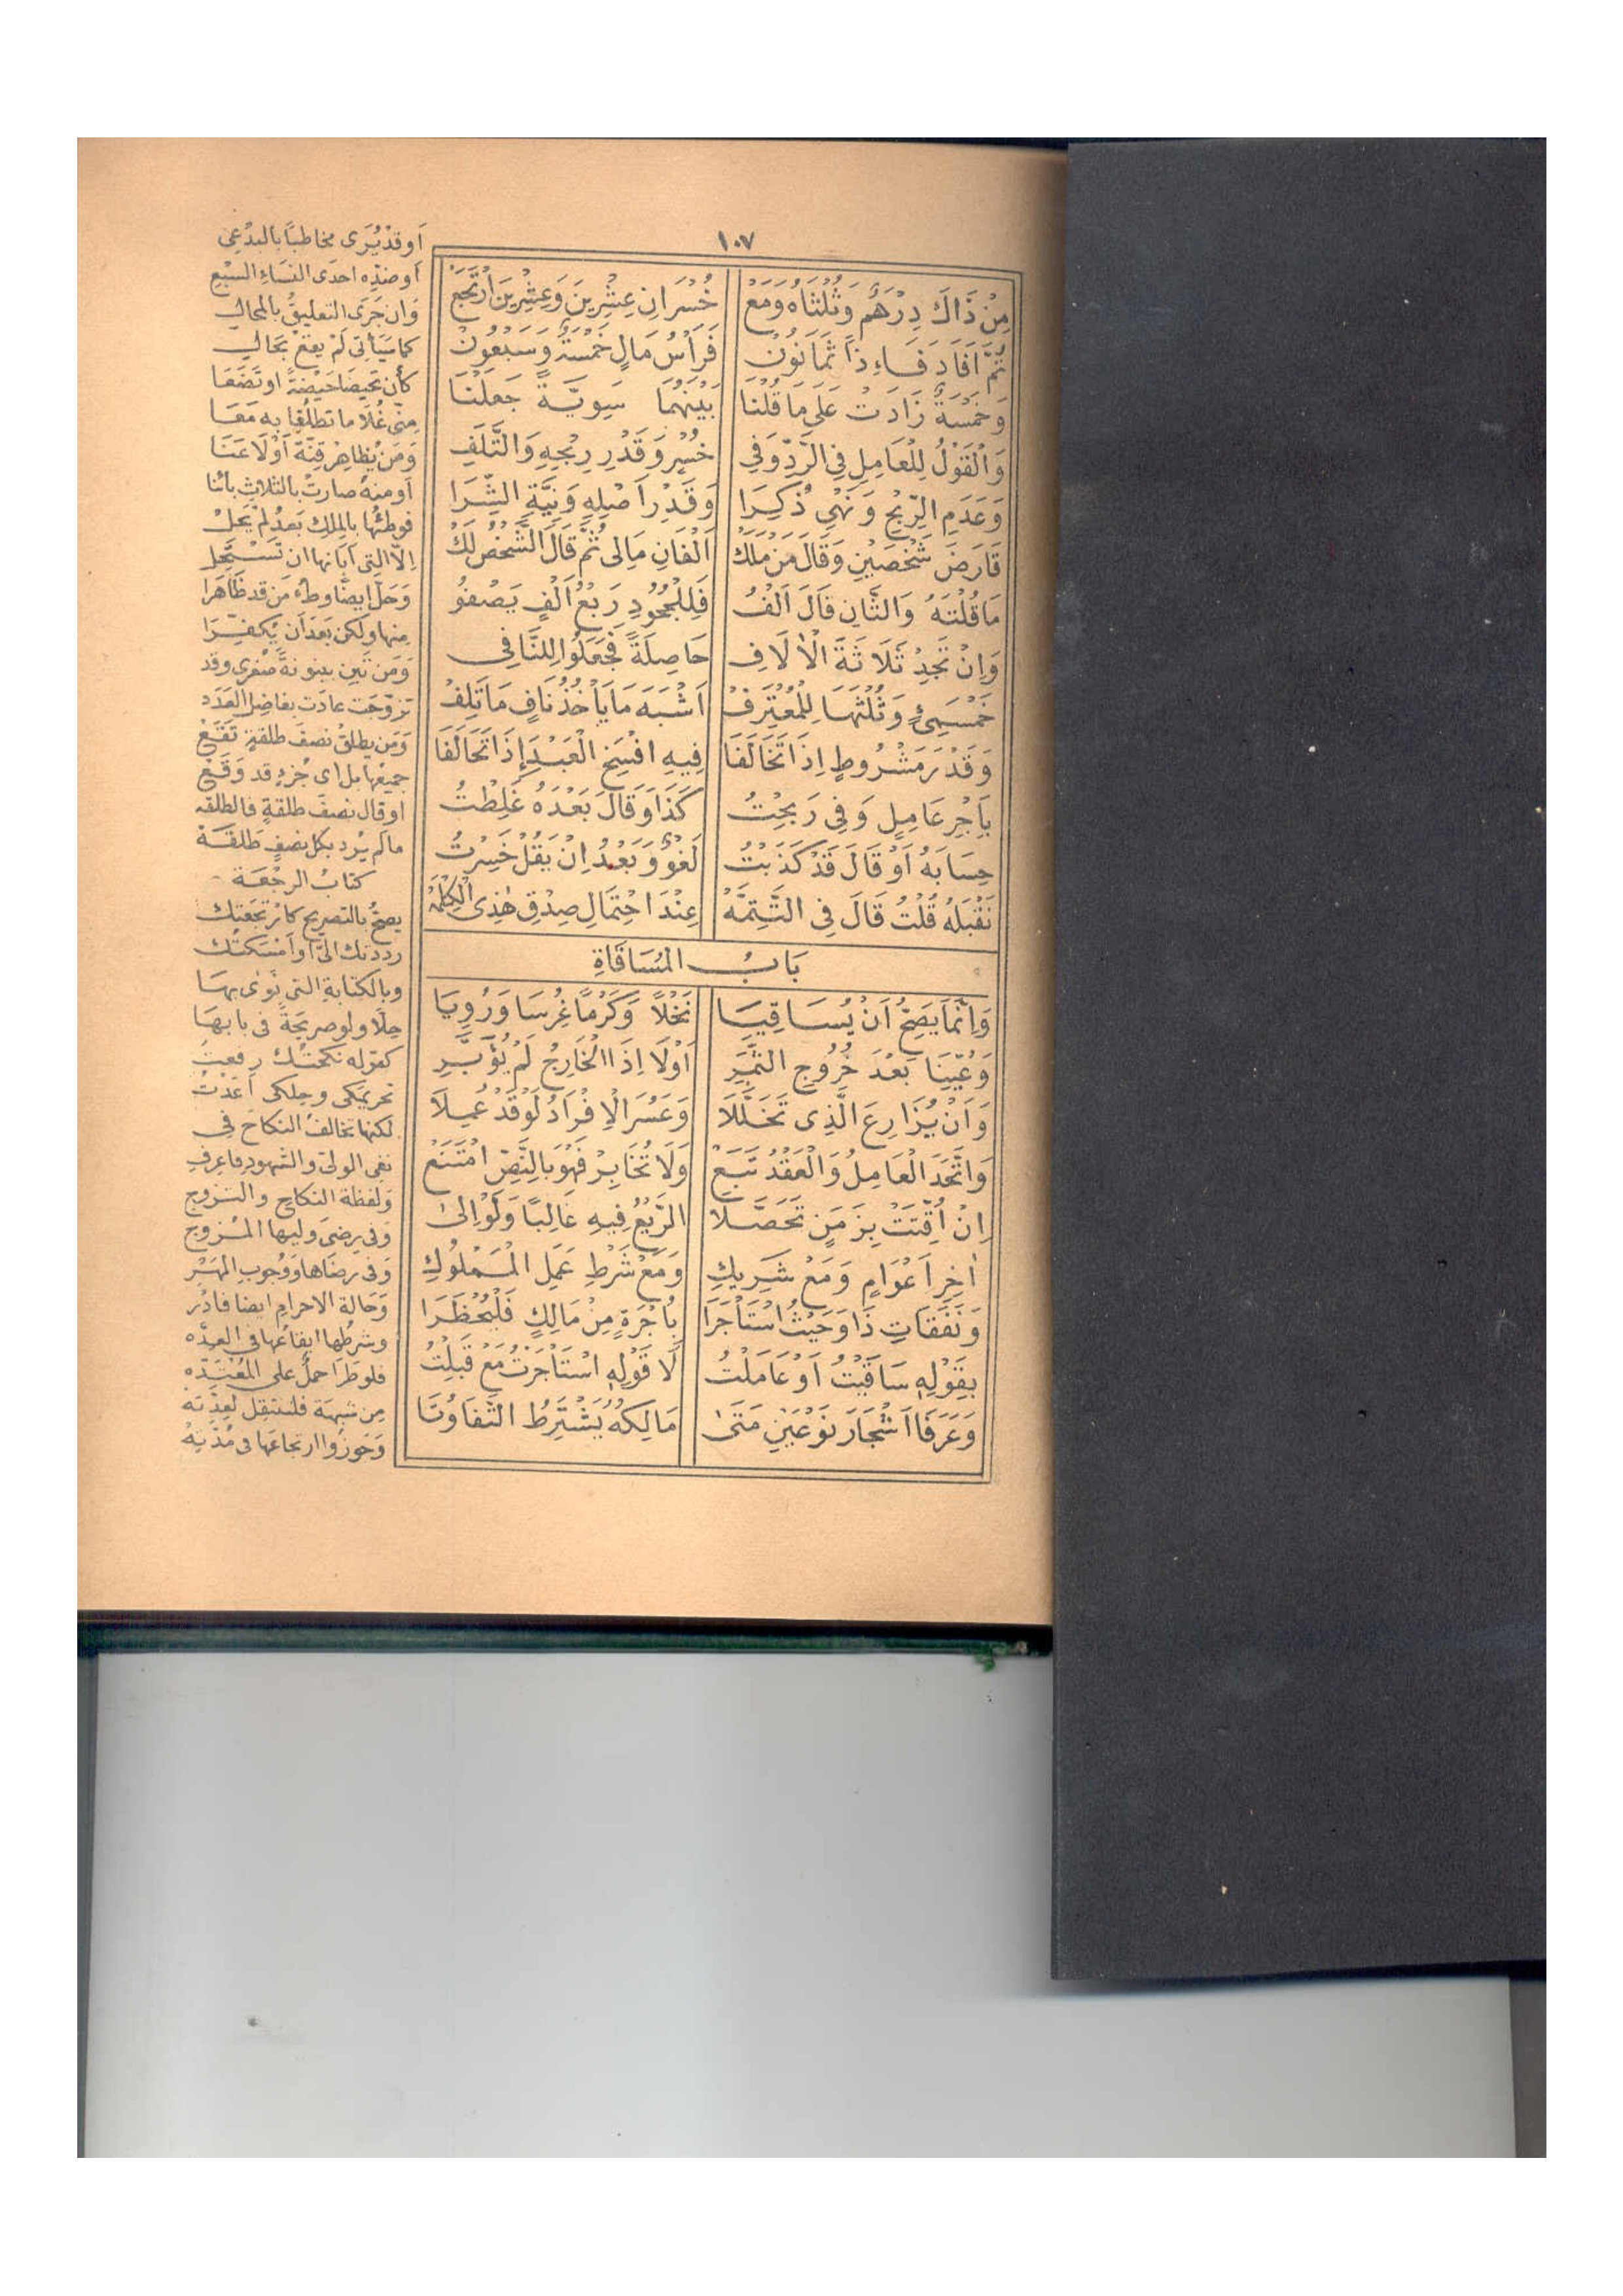 ١٠٧
مِنْ ذَاكَ دِرْهَمٌ وَثُلْثَاهُ وَمَعْ خُسْرَانِ عِشْرِينَ وَعِشْرِينَ ارْتَجَعْ
ثُمَّ اَفَادَ فَاءِ ذَا ثَمَانُونْ فَرَأْسُ مَالٍ خَمْسَةٌ وَسَبْعُونْ
وَخَمْسَةٌ زَادَتْ عَلَى مَا قُلْنَا بَيْنَهُمَا سَوِيَّةً جَعَلْنَا
وَالْقَوْلُ لِلْعَامِلِ فِي الرَّدِّ وَفِي خُسْرٍ وَقَدْرِ رِبْحِهِ وَالتَّلَفِ
وَعَدَمِ الرِّبْحِ وَنَهْيٍ ذُكِرَا وَقَدْرِ اَصْلِهِ وَنِيَّةِ الشِّرَا
قَارَضَ شَخْصَيْنِ وَقَالَ مَنْ مَلَكْ اَلْفَانِ مَالِى ثُمَّ قَالَ الشَّخْصُ لَكْ
مَا قُلْتَهُ وَالثَّانِ قَالَ اَلْفُ فَلِلْجَحُودِ رَبْعُ اَلْفٍ يَصْفُو
وَاِنْ تَجِدْ ثَلَاثَةَ الْاٰلَافِ حَاصِلَةً فَجَعَلُوا لِلنَّافِى
خَمْسَمِئٍ وَثُلْثَهَا لِلْمُعْتَرِفْ اَشْبَهَ مَا يَأْخُذُ نَافٍ مَا تَلِفْ
وَقَدْرَ مَشْرُوطٍ اِذَا تَخَالَفَا فِيهِ افْسَخِ الْعَقْدَ اِذَا تَحَالَفَا
بِاَجْرِ عَامِلٍ وَفِى رَبِحْتُ كَذَا وَقَالَ بَعْدَهُ غَلِطْتُ
حِسَابَهُ اَوْ قَالَ قَدْ كَذَبْتُ لَغْوٌ وَبَعْدُ اِنْ يَقُلْ خَسِرْتُ
نَقْبَلُهُ قُلْتُ قَالَ فِى التَّتِمَّهْ عِنْدَ احْتِمَالِ صِدْقِ هٰذِى الْكَلِمَهْ
بَابُ الْمُسَاقَاةِ
وَاِنَّمَا يَصِحُّ اَنْ يُسَاقِيَا نَخْلًا وَكَرْمًا غُرِسَا وَرُوِيَا
وَعُيِّنَا بَعْدَ خُرُوجِ الثَّمَرِ اَوْ لَا اِذَا الْخَارِجُ لَمْ يُؤَبَّرِ
وَاَنْ يُزَارِعَ الَّذِى تَخَلَّلَا وَعَسُرَ الْاِفْرَادُ لَوْ قَدْ عُمِلَا
وَاتَّحَدَ الْعَامِلُ وَالْعَقْدُ تَبَعْ وَلَا تُخَابِرْ فَهْوَ بِالنَّصِّ امْتَنَعْ
اِنْ اُقِّتَتْ بِزَمَنٍ تَحَصَّلَا الرَّيْعُ فِيهِ غَالِبًا وَلَوْ اِلَىٰ
اٰخِرِ اَعْوَامٍ وَمَعْ شَرِيكِ وَمَعَ شَرْطِ عَمَلِ الْمَمْلُوكِ
وَنَفَقَاتِ ذَا وَحَيْثُ اسْتَأْجَرَا بِاُجْرَةٍ مِنْ مَالِكٍ فَلْيُحْظَرَا
بِقَوْلِهِ سَاقَيْتُ اَوْ عَامَلْتُ لَا قَوْلِهِ اسْتَأْجَرْتُ مَعْ قَبِلْتُ
وَعَرَفَا اَشْجَارَ نَوْعَيْنِ مَتَىٰ مَالِكُهُ يَشْتَرِطُ التَّفَاوُتَا
اَو قَدْ يُرَى مخاطبًا بالبدْعِى
اَو ضدِّه احدَى النسَاءِ السَّبْعِ
وَان جَرَى التعليقُ بالمحالِ
كما سَيَأتى لَمْ يقعْ بحالِ
كأن تحيضَا حَيْضةً او تضَعَا
مِنّى غُلاما تطلُقا به مَعَا
وَمَن يُظاهِرْ قِنَّةً اَوْ لَاعَنَا
اَو منهُ صارتْ بالثلاثِ بائنا
فوطئُها بالمِلكِ بَعدُ لَمْ يَحِلْ
اِلاّ التى اَبَانها ان تَسْتَحِلْ
وَحَلَّ ايضًا وطءُ مَن قد ظَاهَرا
مِنها ولكن بَعدَ اَن يُكفِّرَا
وَمَن تَبِن بينونةً صُغرى وقد
تزوّجَت عادَت بفاضِل العَدَد
وَمَن يطلقْ نصفَ طلقةٍ تَقَعْ
جميعُها بل اى جُزءٍ قد وَقَعْ
او قال نصفَ طلقةٍ فالطلقه
ما لم يُرد بكل نصفٍ طَلقَهْ
كتابُ الرجْعَة
يصحُّ بالتصريح كارْتجَعْتِك
رددتك الىَّ او اَمْسَكتُك
وبالكِتابةِ التى نَوٰى بهَا
حِلاًّ ولو صريحَةً فى بابهَا
كقوله نكحتُك رفعتُ
تحريمَكى وحِلكى اَعَدْتُ
لكنها تخالفُ النكاحَ فى
نفى الولىّ والشهودِ فاعرِفِ
وَلفظة النكاحِ والتزوجِ
وَفى رِضَى وليها المُزوجِ
وَفى رِضَاها وَوُجوبِ المَهْرِ
وَحَالة الاحرامِ ايضا فادْرِ
وشرطُها ايقاعُها فى العدّه
فلو طَرَا حملٌ على المُعْتدّه
مِن شبهَة فلتنتقِل لعدّته
وَجوزوا ارتجاعَها فى مُدّتِه